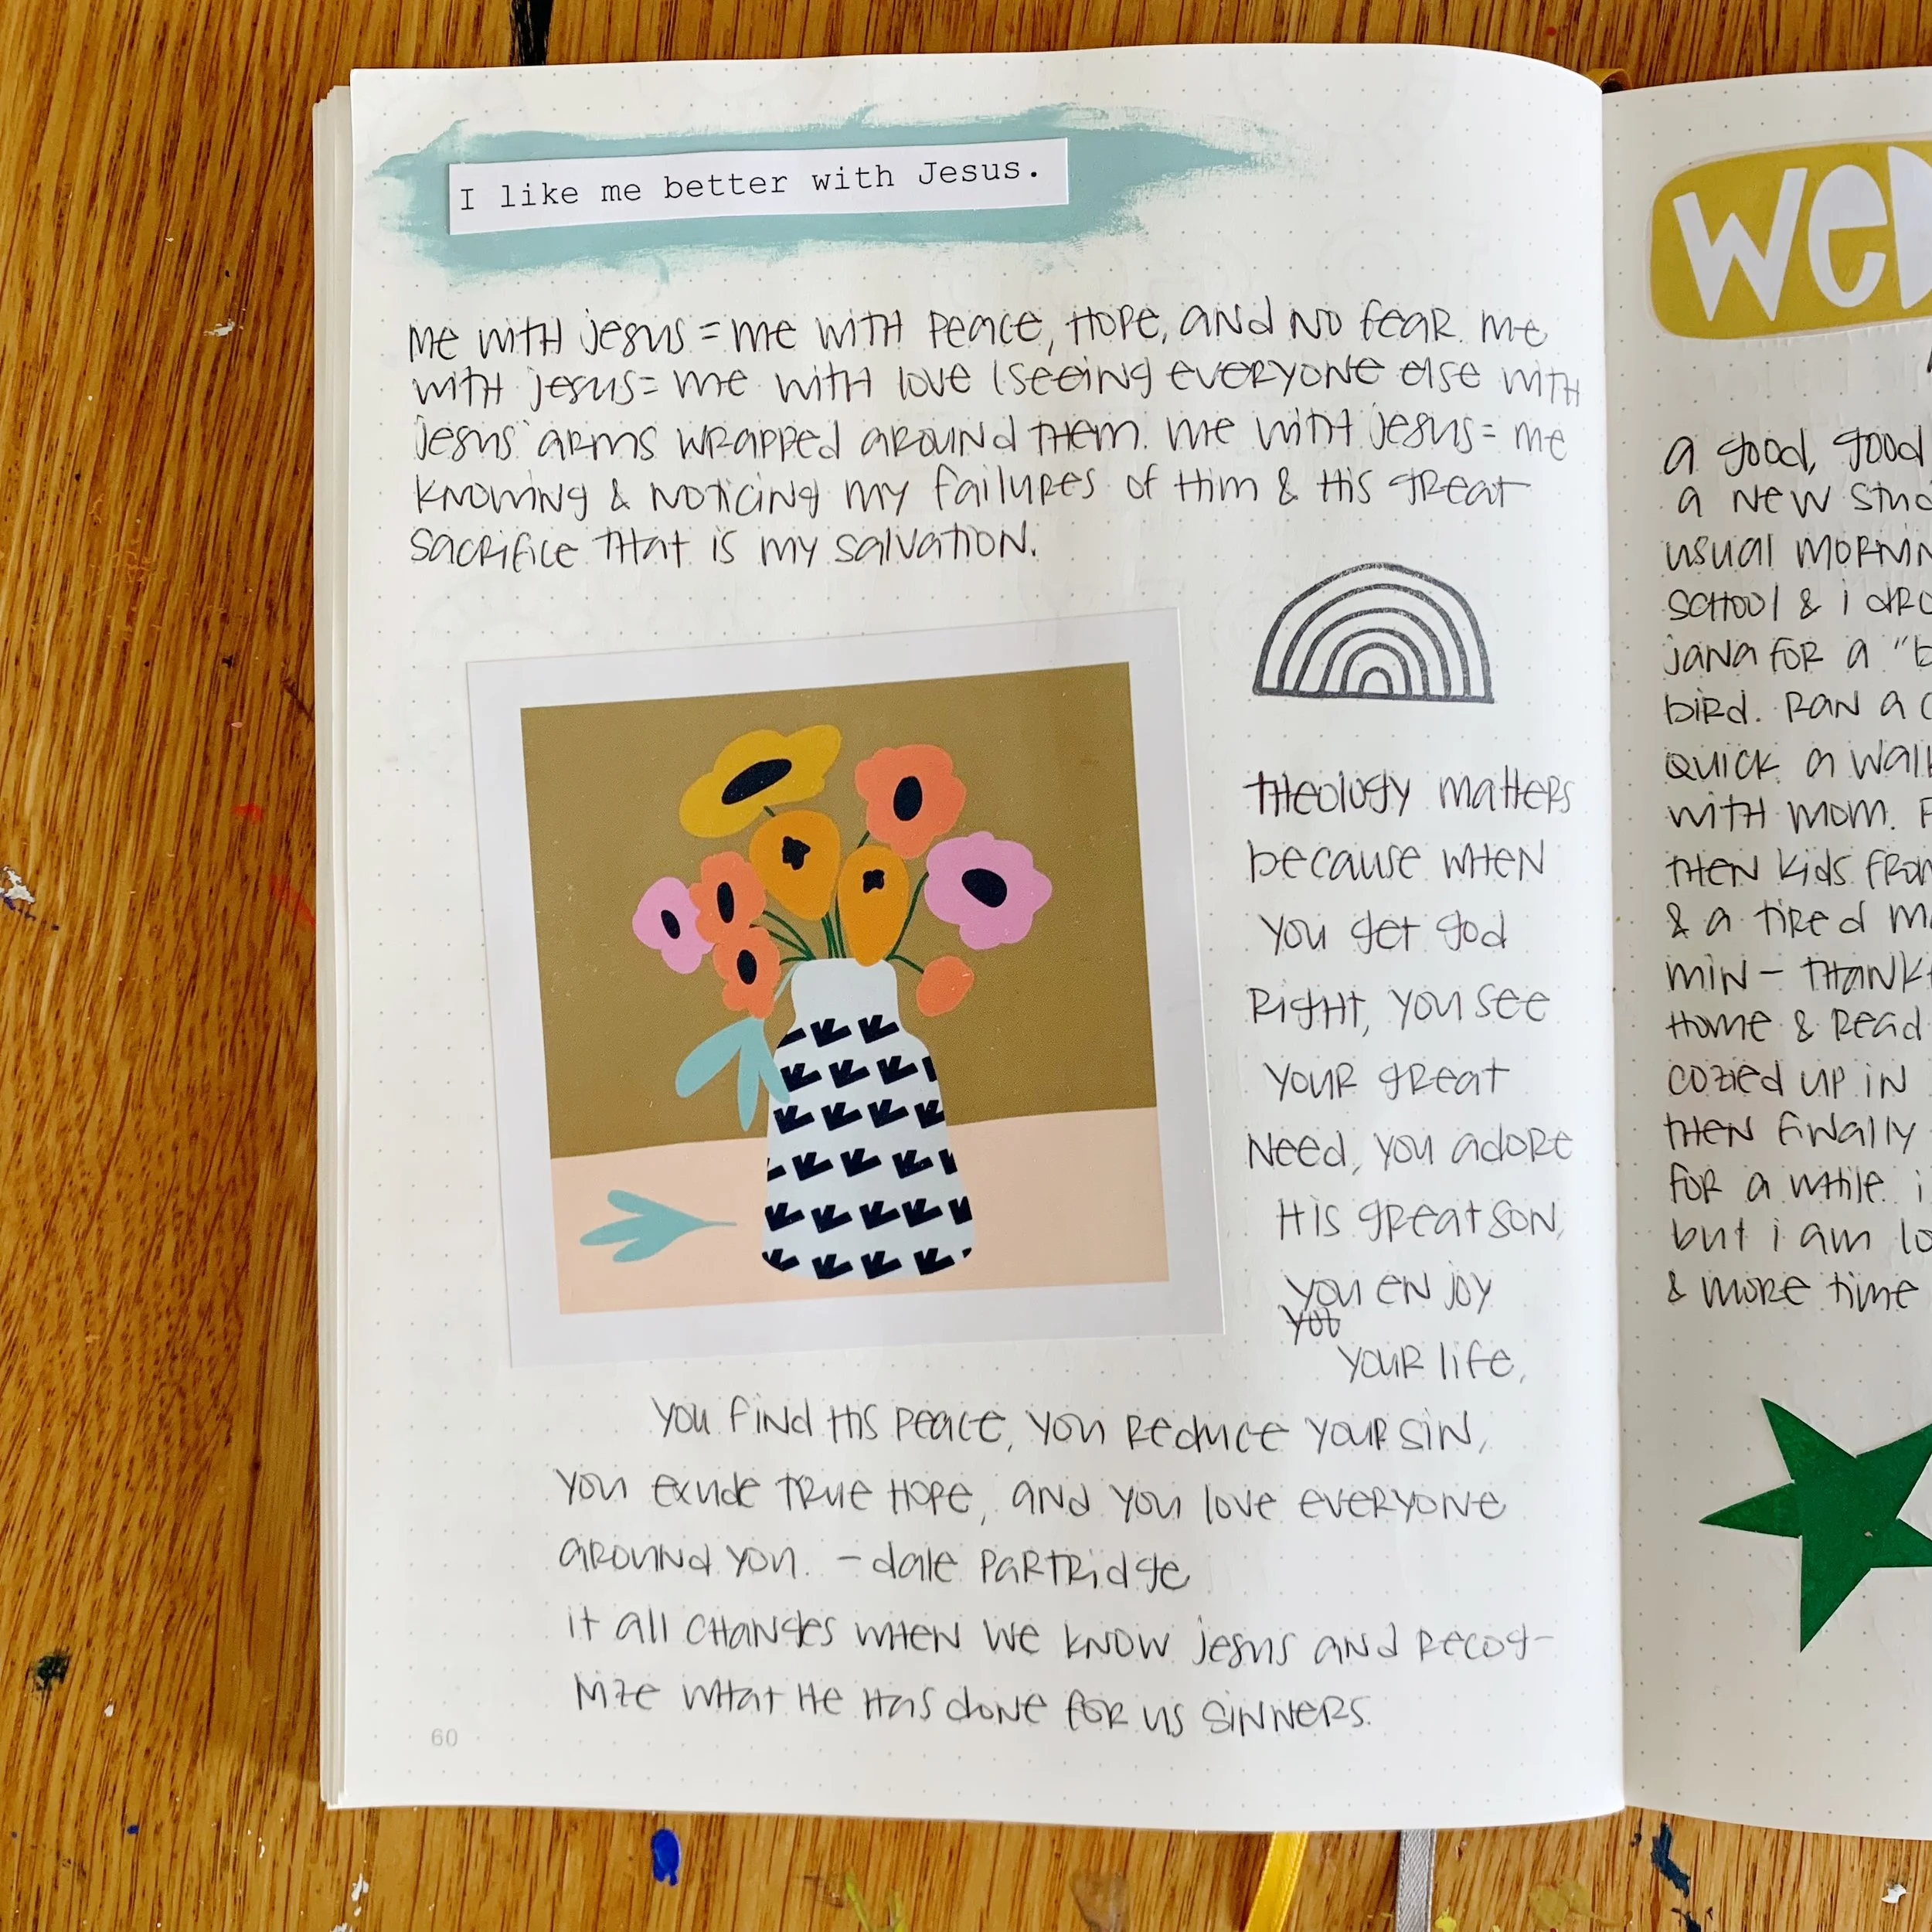 I like me better with Jesus.
me with jesus = me with peace, hope, and no fear. me
with jesus = me with love (seeing everyone else with
jesus' arms wrapped around them. me with jesus = me
knowing & noticing my failures of Him & His great
sacrifice that is my salvation.
theology matters
because when
you get god
right, you see
your great
need, you adore
His great son,
you enjoy
you
your life,
you find His peace, you reduce your sin,
you exude true hope, and you love everyone
around you. - dale partridge
it all changes when we know jesus and recog-
nize what He has done for us sinners.
60
wed
a good, good
a new
usual
school & i
jana for a "b
bird. ran a
quick a walk
with mom.
then kids from
& a tired
min -
home & read
cozied up in
then finally
for a while. i
but i am
& more time